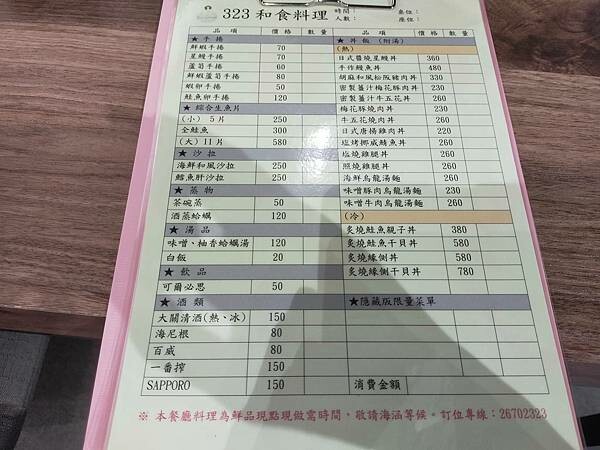 323 和食料理
時間： 桌位：
人數： 座位：
品 項 價 格 數 量
★ 手 捲
鮮蝦手捲 70
星鰻手捲 70
蘆筍手捲 60
鮮蝦蘆筍手捲 80
蝦卵手捲 50
鮭魚卵手捲 120
★ 綜合生魚片
(小) 5片 250
全鮭魚 300
(大) 11片 580
★ 沙 拉
海鮮和風沙拉 250
鱈魚肝沙拉 250
★ 蒸 物
茶碗蒸 50
酒蒸蛤蠣 120
★ 湯 品
味噌、柚香蛤蠣湯 120
白飯 20
★ 飲 品
可爾必思 50
★ 酒 類
大關清酒(熱、冰) 150
海尼根 80
百威 80
一番搾 150
SAPPORO 150
品 項 價 格 數 量
★ 丼 飯 (附湯)
(熱)
日式醬燒星鰻丼 360
手作鰻魚丼 480
胡麻和風松阪豬肉丼 330
密製薑汁梅花豚肉丼 230
密製薑汁牛五花丼 260
梅花豚燒肉丼 230
牛五花燒肉丼 260
日式唐揚雞肉丼 220
塩烤挪威鯖魚丼 260
塩燒雞腿丼 260
照燒雞腿丼 260
海鮮烏龍湯麵 260
味噌豚肉烏龍湯麵 230
味噌牛肉烏龍湯麵 260
(冷)
炙燒鮭魚親子丼 380
炙燒鮭魚干貝丼 580
炙燒緣側丼 580
炙燒緣側干貝丼 780
★隱藏版限量菜單
消費金額
※ 本餐廳料理為鮮品現點現做需時間，敬請海涵等候。訂位專線：26702323